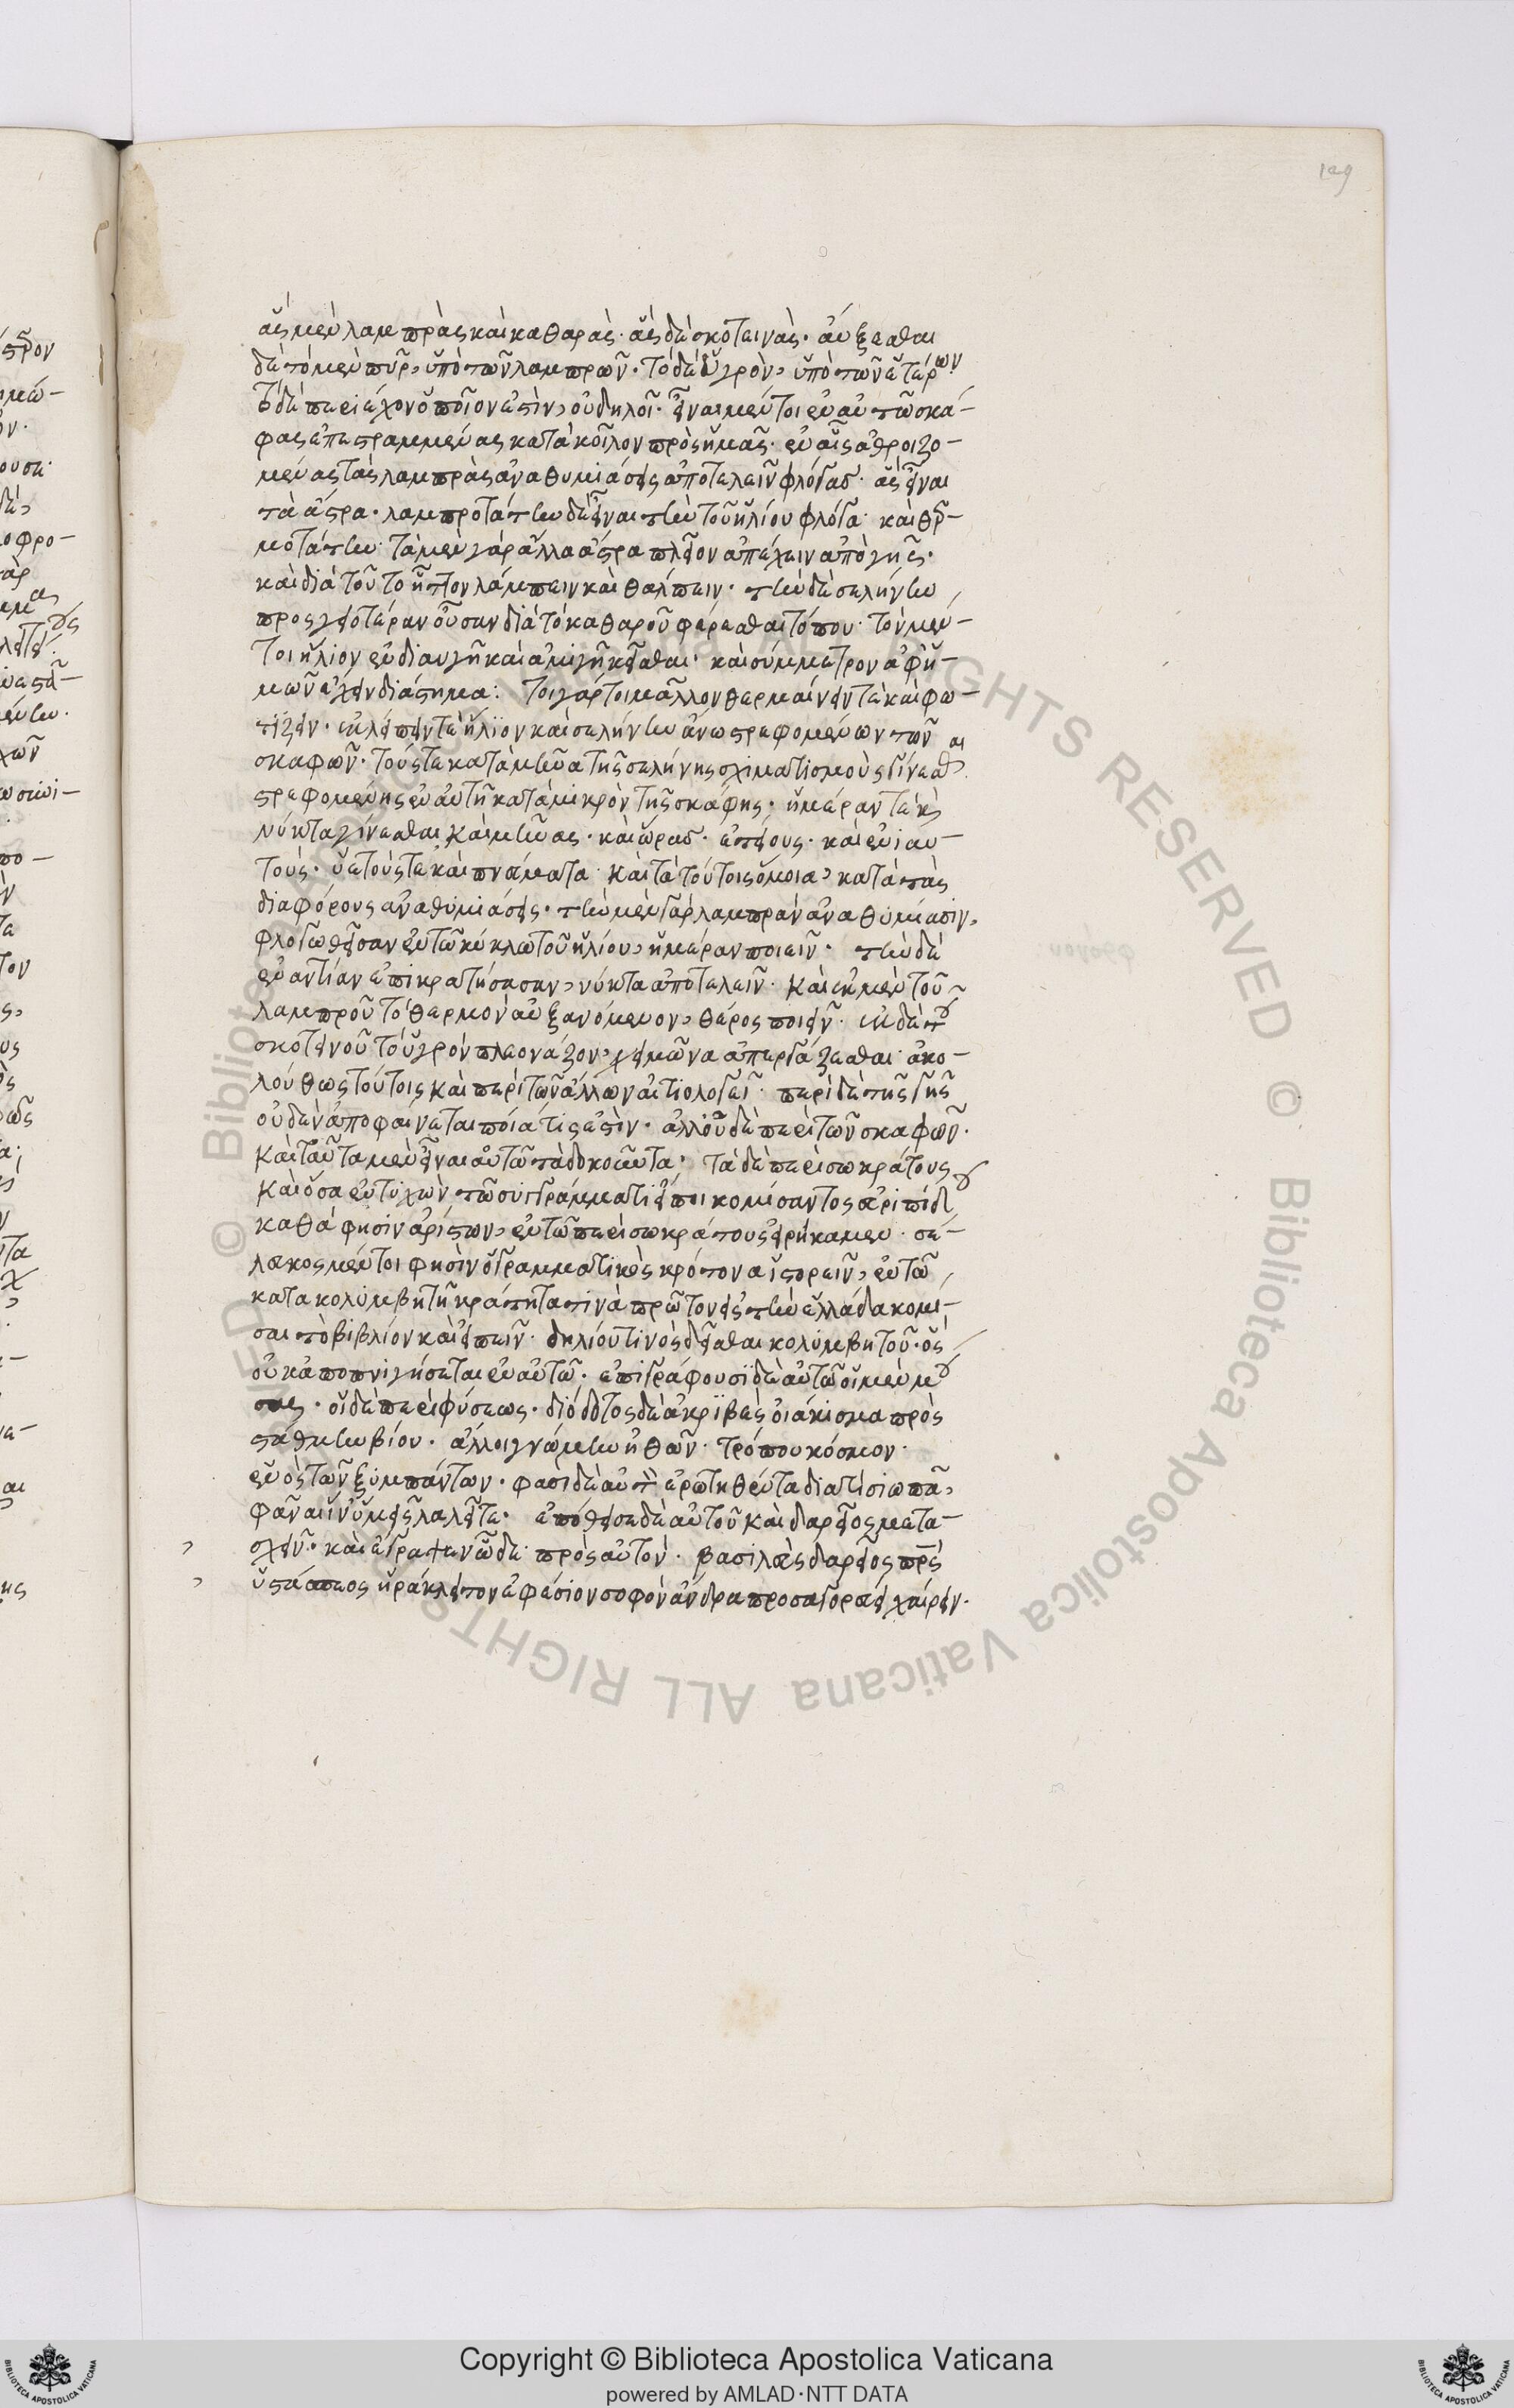 129
ἃς μὲν λαμπρὰς καὶ καθαρὰς· ἃς δὲ σκοτεινάς· αὔξεσθαι
δὲ τὸ μὲν πῦρ, ὑπὸ τῶν λαμπρῶν· τὸ δὲ ὑγρὸν, ὑπὸ τῶν ἑτέρων.
τὸ δὲ περιέχον ὁποῖον ἐστὶν, οὐ δηλοῖ· εἶναι μέντοι ἐν αὐτῶ σκά-
φας ἐπεστραμμένας κατὰ κοῖλον πρὸς ἡμᾶς· ἐν αἷς ἀθροιζο-
μένας τὰς λαμπρὰς ἀναθυμιάσεις ἀποτελεῖν φλόγας· ἃς εἶναι
τὰ ἄστρα· λαμπροτάτην δὲ εἶναι τὴν τοῦ ἡλίου φλόγα· καὶ θερ-
μοτάτην· τὰ μὲν γὰρ ἄλλα ἄστρα πλεῖον ἀπέχειν ἀπὸ γῆς·
καὶ διὰ τοῦτο ἧττον λάμπειν καὶ θάλπειν· τὴν δὲ σελήνην
προσγειοτέραν οὖσαν διὰ τὸ καθαροῦ φέρεσθαι τόπου· τὸν μέν-
τοι ἥλιον ἐν διαυγῆ καὶ ἀμιγῆ κεῖσθαι· καὶ σύμμετρον ἀφ' ἡ-
μῶν ἔχειν διάστημα: τοιγάρτοι μᾶλλον θερμαίνειν τὲ καὶ φω-
τίζειν· ἐκλείπειν τὲ ἥλιον καὶ σελήνην ἄνω στρεφομένων τῶν
σκαφῶν· τούς τε κατὰ μῆνα τῆς σελήνης σχηματισμοὺς γίνεσθαι
στρεφομένης ἐν αὐτῆ κατὰ μικρὸν τῆς σκάφης· ἡμέραν τὲ καὶ
νύκτα γίνεσθαι καὶ μῆνας· καὶ ὥρας· ἐτείους· καὶ ἐνιαυ-
τούς· ὑετούς τε καὶ πνεύματα· καὶ τὰ τούτοις ὅμοια, κατὰ τὰς
διαφόρους ἀναθυμιάσεις· τὴν μὲν γὰρ λαμπρὰν ἀναθυμίασιν,
φλογωθεῖσαν ἐν τῶ κύκλω τοῦ ἡλίου, ἡμέραν ποιεῖν· τὴν δὲ
ἐναντίαν ἐπικρατήσασαν, νύκτα ἀποτελεῖν· καὶ ἐκ μὲν τοῦ
λαμπροῦ τὸ θερμὸν αὐξανόμενον, θέρος ποιεῖν· ἐκ δὲ τοῦ
σκοτεινοῦ τὸ ὑγρὸν πλεονάζον, χειμῶνα ἀπεργάζεσθαι· ἀκο-
λούθως τούτοις καὶ περὶ τῶν ἄλλων αἰτιολογεῖ· περὶ δὲ τῆς γῆς
οὐδὲν ἀποφαίνεται ποία τίς ἐστὶν· ἀλλ' οὐδὲ περὶ τῶν σκαφῶν·
καὶ ταῦτα μὲν εἶναι αὐτῶ τὰ δοκοῦντα· τὰ δὲ περὶ σωκράτους
καὶ ὅσα ἐντυχὼν τῶ συγγράμματι εἴποι κομίσαντος εὐριπίδου
καθά φησιν ἀρίστων, ἐν τῶ περὶ σωκράτους εἰρήκαμεν· σέ-
λευκος μέντοι φησὶν ὁ γραμματικὸς κρότονα ἱστορεῖν, ἐν τῶ
κατακολυμβητῆ κράτητα τινὰ πρῶτον εἰς τὴν ἑλλάδα κομί-
σαι τὸ βιβλίον καὶ εἰπεῖν· δηλίου τινὸς δεῖσθαι κολυμβητοῦ· ὃς
οὐκ ἀποπνιγήσεται ἐν αὐτῶ· ἐπιγράφουσϊ δὲ αὐτῶ οἱ μὲν μού
σας· οἱ δὲ περὶ φύσεως· διόδοτος δὲ ἀκριβὲς οἰάκισμα πρὸς
στάθμην βίου· ἄλλοι γνώμην ἠθῶν· τρόπου κόσμον·
ἑνὸς τῶν ξυμπάντων· φασὶ δὲ αὐτὸν ἐρωτηθέντα διατί σιωπᾶ,
φᾶναι ἵν' ὑμεῖς λαλεῖτε· ἐπόθησε δὲ αὐτοῦ καὶ δαρεῖος μετα-
σχεῖν· καὶ ἔγραψεν ὧδε πρὸς αὐτόν· βασιλεὺς δαρεῖος πρς
ὑστάσπεος ἡράκλειτον ἐφέσιον σοφὸν ἄνδρα προσαγορεύει χαίρειν·
Copyright © Biblioteca Apostolica Vaticana
powered by AMLAD·NTT DATA